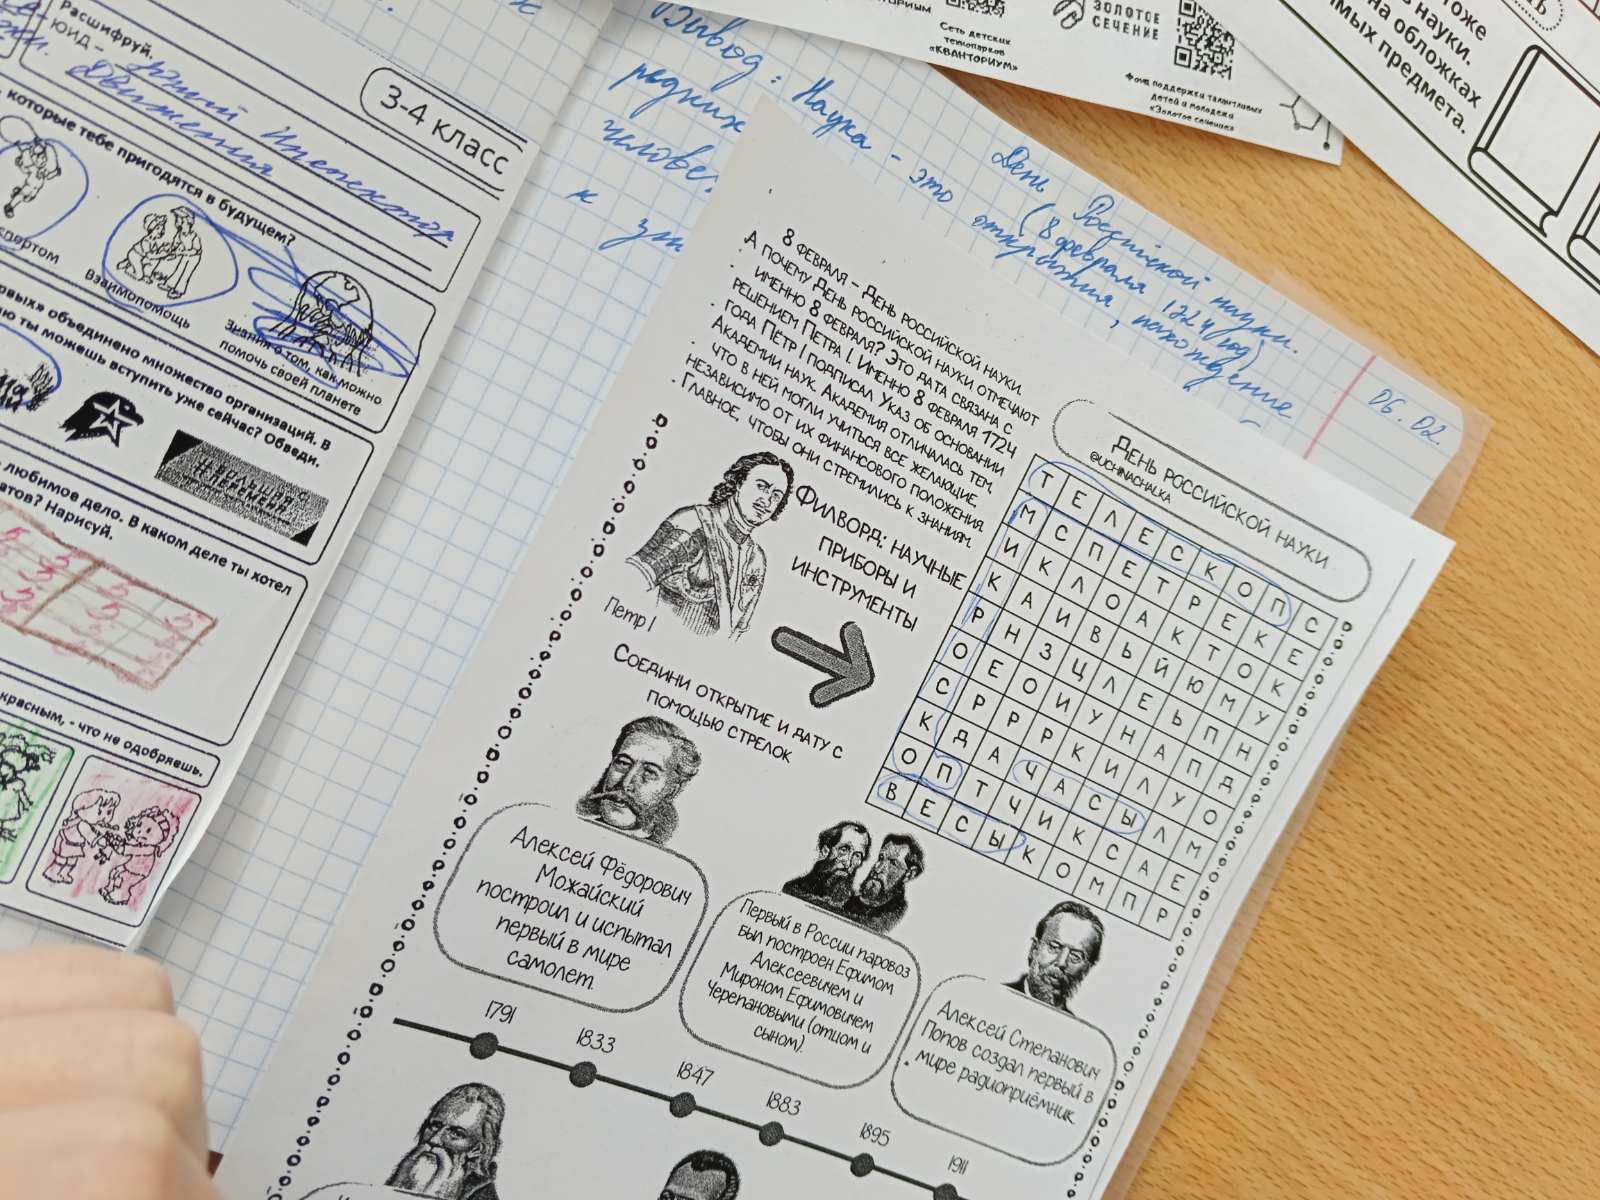 Расшифруй.
ЮИД –
юный Инспектор
Движения
3-4 класс
которые тебе пригодятся в будущем?
Взаимопомощь
Знания о том, как можно
помочь своей планете
объединено множество организаций. В
ты можешь вступить уже сейчас? Обведи.
любимое дело. В каком деле ты хотел
Нарисуй.
красным, - что не одобряешь.
Вывод: Наука - это открытия, нахождение
редких
к
Сеть детских
технопарков
«КВАНТОРИУМ»
ЗОЛОТОЕ
СЕЧЕНИЕ
Фонд поддержки талантливых
детей и молодежи
«Золотое сечение»
тоже
науки.
на обложках
предмета.
06.02.
День Российской науки.
(8 февраля 1724 год)
8 февраля – День российской науки.
А почему День российской науки отмечают
именно 8 февраля? Это дата связана с
решением Петра I. Именно 8 февраля 1724
года Пётр I подписал Указ об основании
Академии наук. Академия отличалась тем,
что в ней могли учиться все желающие,
независимо от их финансового положения.
Главное, чтобы они стремились к знаниям.
День российской науки
@UCHINACHALKA
Филворд: научные
приборы и
инструменты
Петр I
Т Е Л Е С К О П С
М С П Е Т Р Е К Е
И К Л О А К Т О К
К А И В Ь Й Ю М У
Р Н З Ц Л Е Ь П Н
О Е О И У Н А П Д
С Р Р Р К И Л У О
К Д А Ч А С Ы Л М
О П Т Ч И К С А Е
В Е С Ы К О М П Р
Соедини открытие и дату с
помощью стрелок
Алексей Фёдорович
Можайский
построил и испытал
первый в мире
самолет.
Первый в России паровоз
был построен Ефимом
Алексеевичем и
Мироном Ефимовичем
Черепановыми (отцом и
сыном).
Алексей Степанович
Попов создал первый в
мире радиоприёмник.
1791
1833
1847
1883
1895
1911